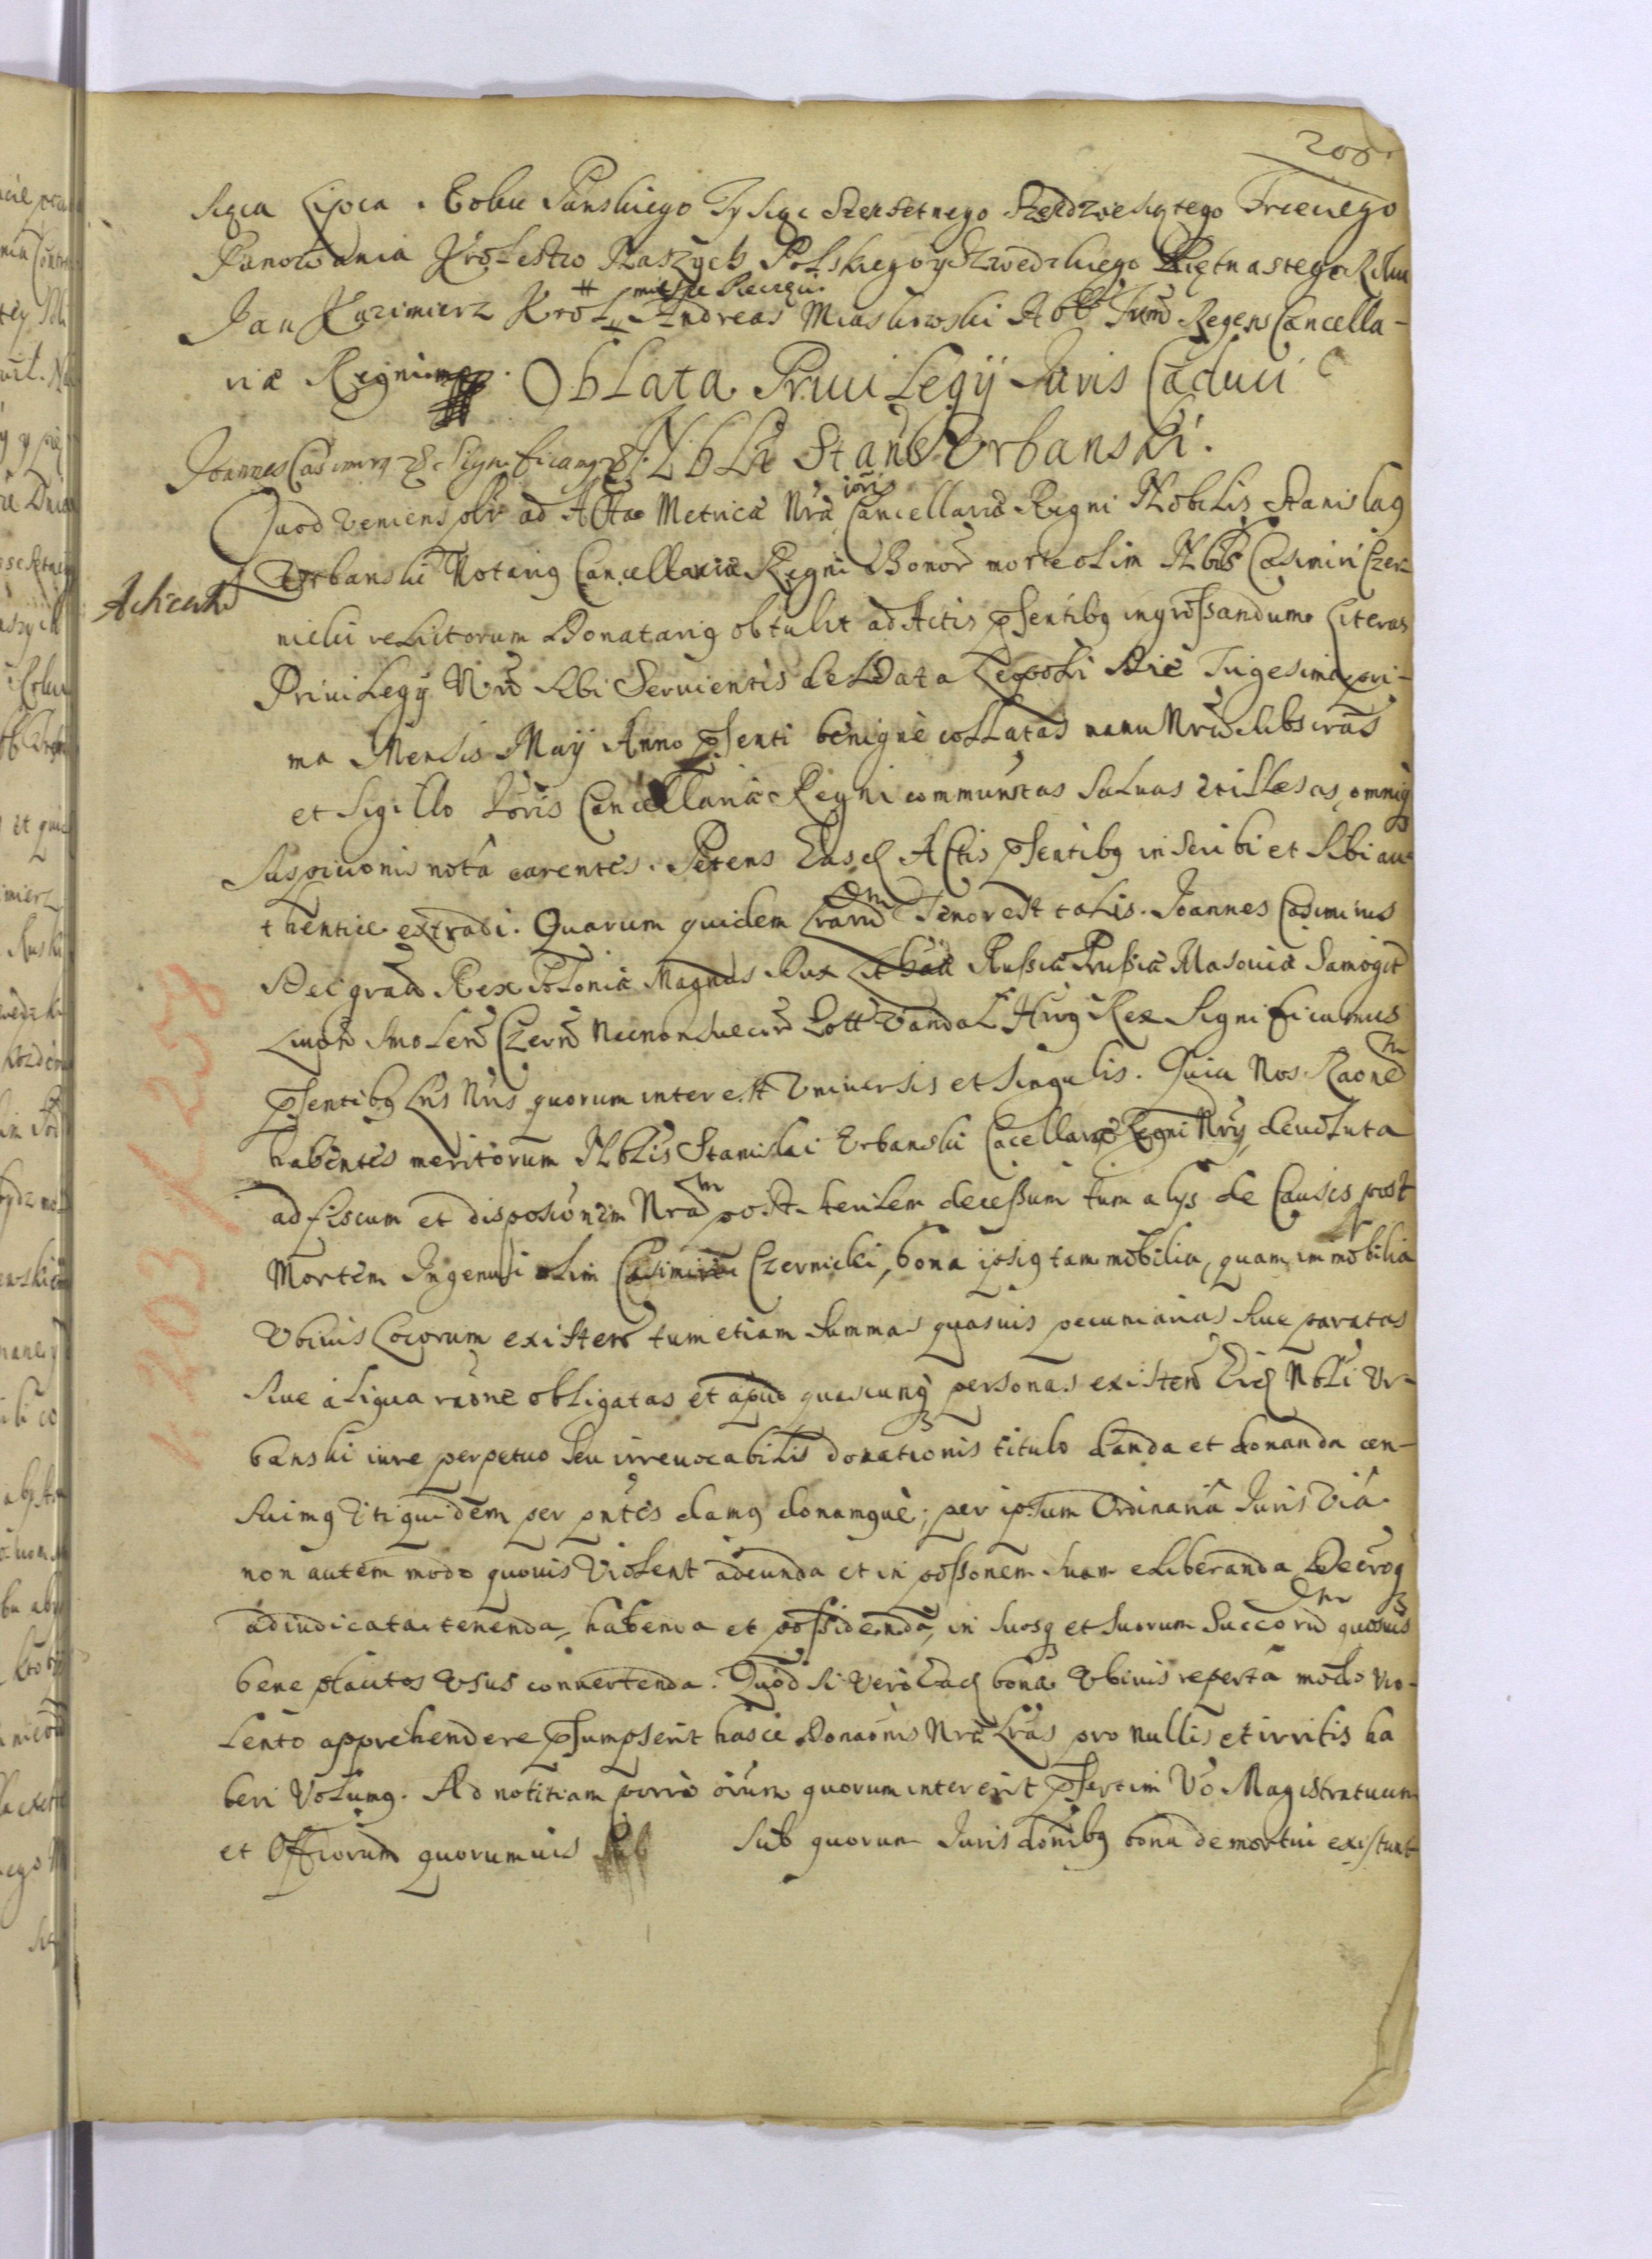 208.
siąca Lipca. Roku Panskiego Tysiąc Szescsetnego Szescdziesiątego Trzeciego
Panowania Krolestw Naszych Polskiego y Szwedzkiego Piętnastego Roku
Jan Kazimierz Krol # mieÿsce Pieczęci. Andreas Miaskowski Abb Regens Cancella-
riæ Regni mpp. Oblata Priuilegij Juris Caduci
Joannes Casimirg &c. Significamg &c. Nbli Stanis Vrbanski.
Quod veniens plr ad Acta Metricæ Nræ Cancellariæ ioris Regni Nobilis Stanislag
Vrbanski Notarig Cancellariæ Regni Bonor morte olim Nblis Casimiri Czer-
nicki relictorum Donatarig obtulit ad Actis pſentibg ingroſsandum Literas
Priuilegij Nri sibi Seruientis de Data Leopoli Die Trigesima pri-
ma Mensis Maij Anno pſenti benignè collatas manu Nra subscras
et Sigillo ioris Cancellariæ Regni communitas saluas et illæsas, omnig
suspicionis nota carentes. Petens Easd Actis pſentibg inscribi et sibi au-
thentice extradi. Quarum quidem Lrarum Tenor est talis. Joannes Casimirus
Dei gratia Rex Poloniæ Magnus Dux Lithuaæ Rußiæ Prußiæ Masouiæ Samogit
Liuon Smolen Czern Necnon Suecor Gott Vandal Hrg Rex Significamus
pſentibg Lris Nris quorum interest Vniuersis et singulis. Quia Nos Raonem
habentes meritorum Nblis Stanislai Vrbanski Cacellariæ Regni Nrij, deuoluta
ad fiscum et dispositionem Nram post sterilem deceßum tum alijs de Causis post
Mortem Ingenui olim Casimiri Czernicki, bona ipsig tam mobilia, quam immobilia
Vbiuis Locorum existen tum etiam summas quasuis pecuniarias siue paratas
siue aliqua raone obligatas et apud quascunq personas existen Eid Nbli Vr-
banski iure perpetuo seu irreuocabilis donationis titulo danda et donanda cen-
suimg Vti quidem per pntes damg donamguè; per ipsum Ordinaria Juris via
non autem modo quouis violent adeunda et in poſsonem suam eliberanda Decretog
adiudicata tenenda, habenda et poſsidenda, in suosq et suorum Succorum quosuis
bene placitos Vsus conuertenda. Quod si verò Ead bona Vbiuis reperta modo vio-
lento apprehendere pſumpserit hasce Donaonis Nræ Lras pro nullis et irritis ha
beri Volumg. Ad notitiam porrò oium quorum intererit pſertim Vo Magistratuum
et Officiorum quorumuis sub quorum Jurisdonibg bona demortui existunt
k. 203 / 258